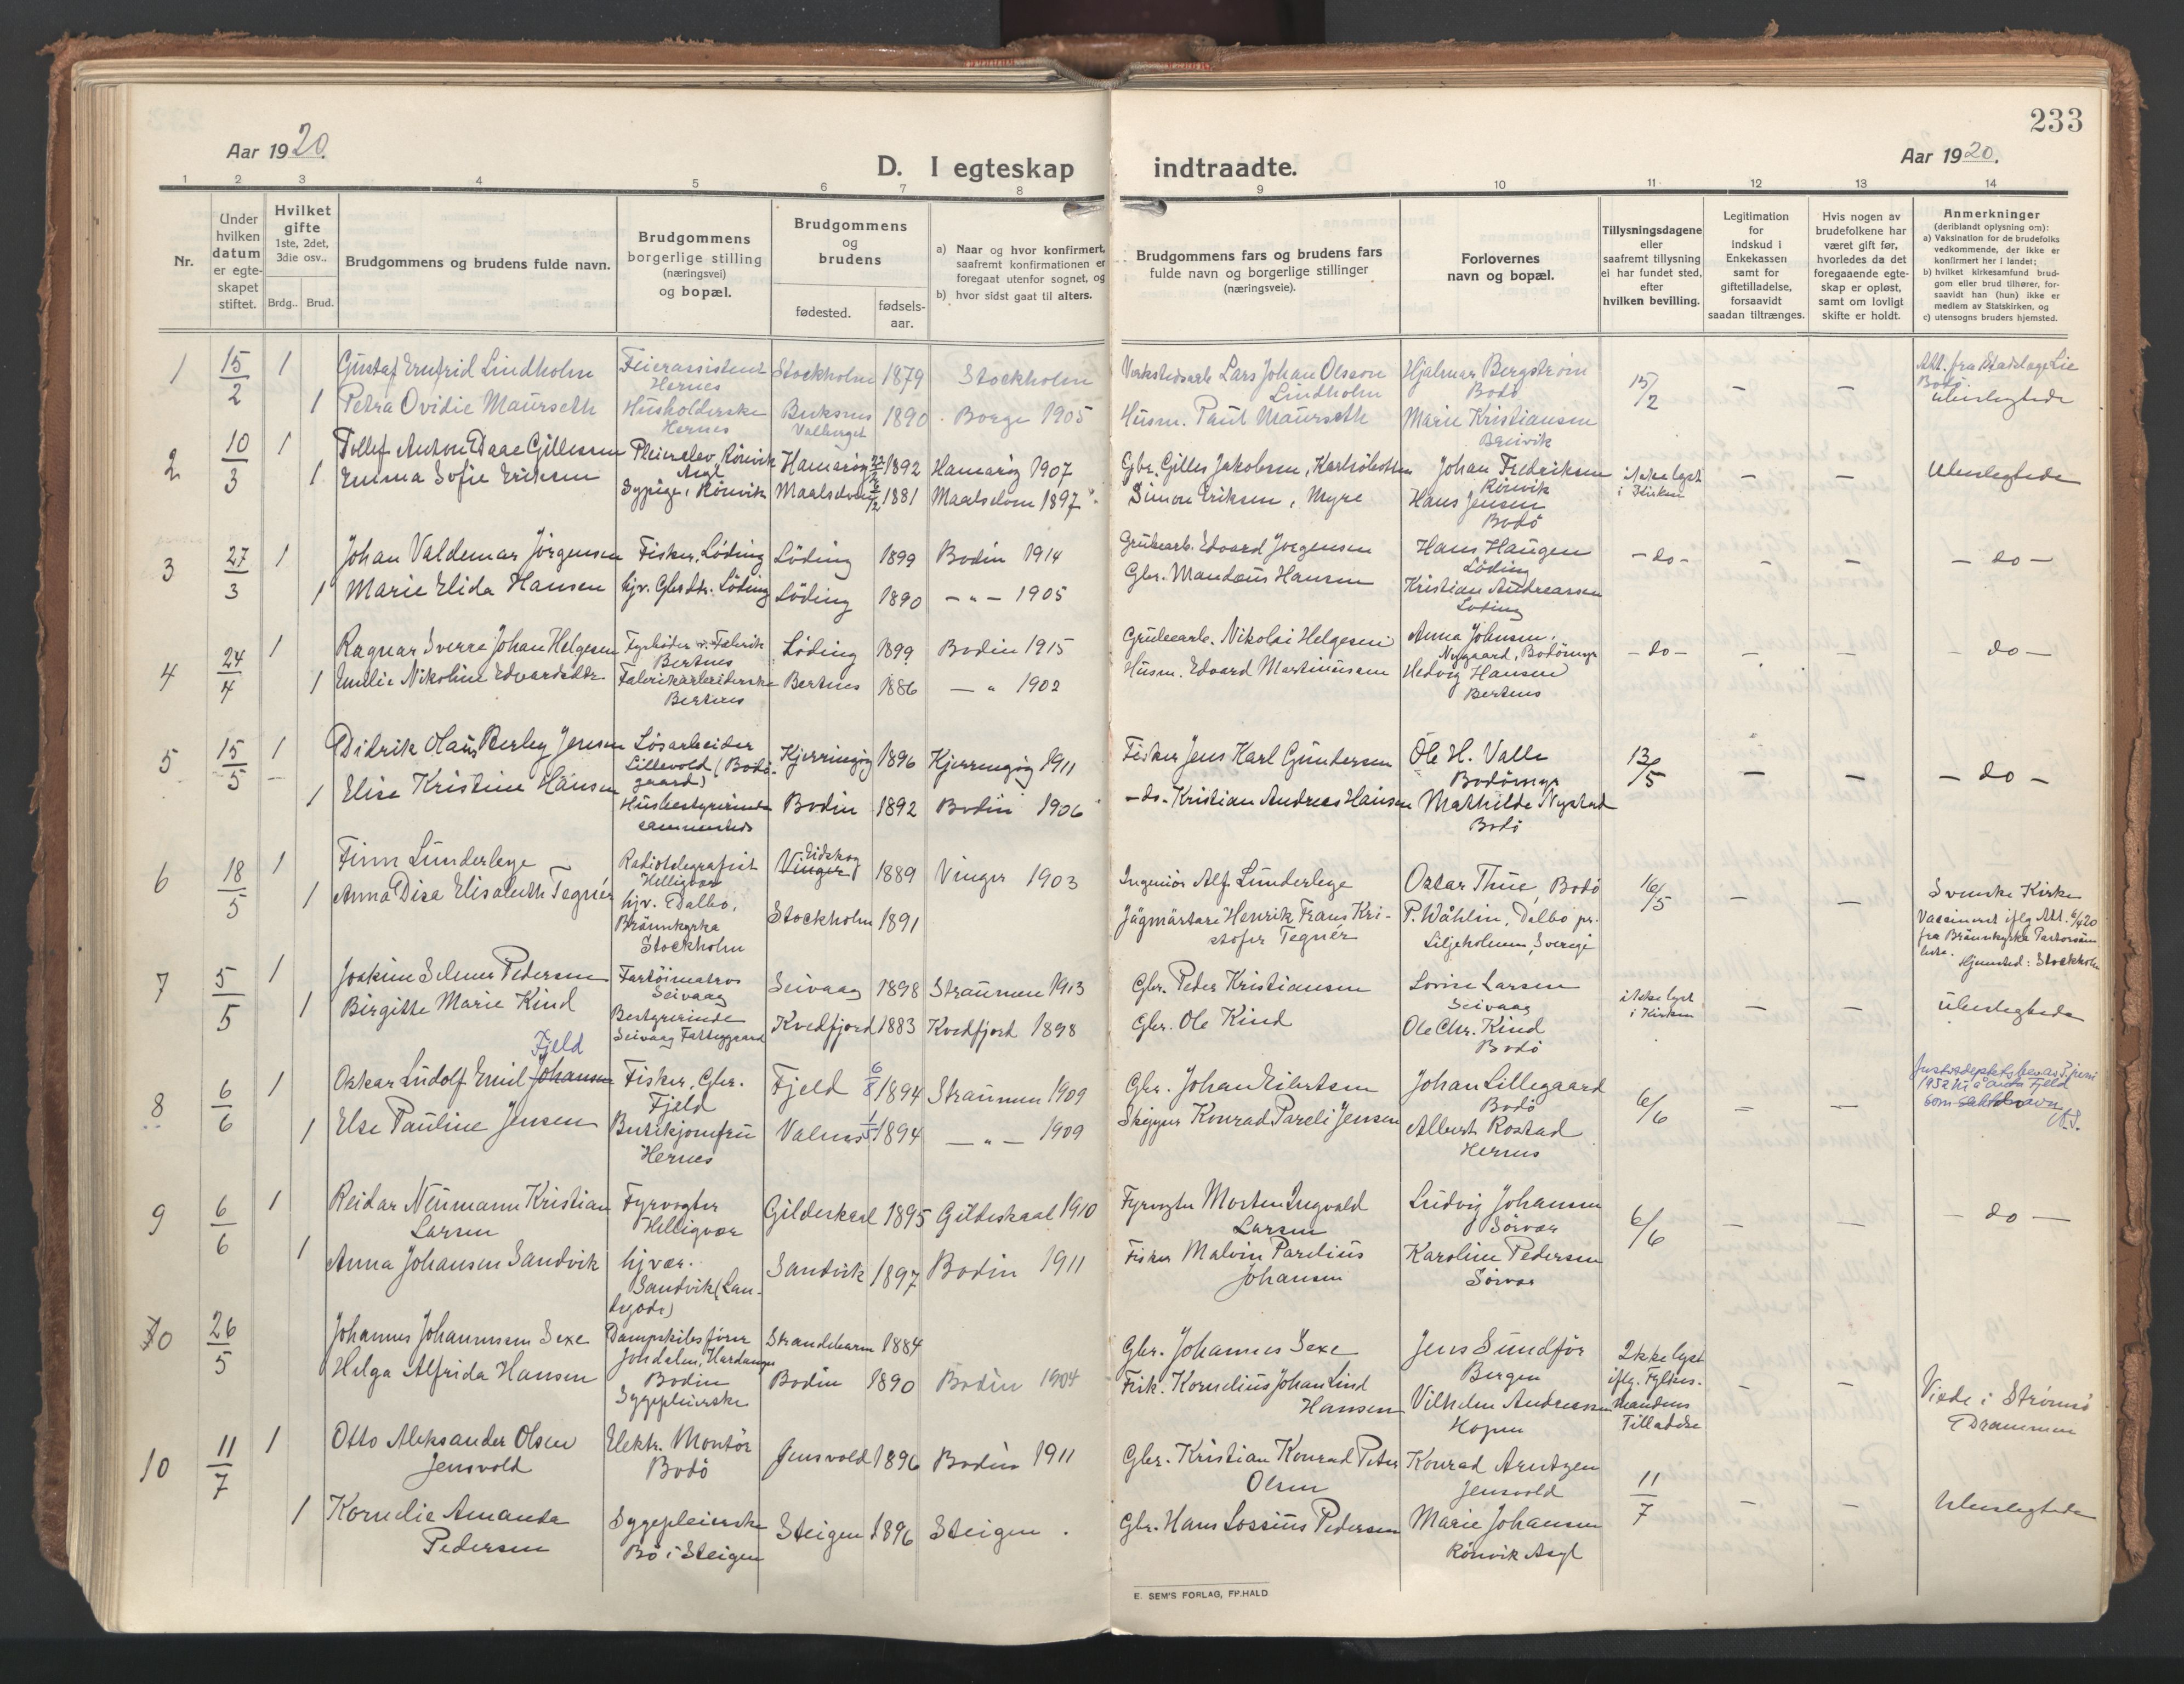 233
Aar 1920.
D. I egteskap indtraadte.
Aar 1920.
1 2 3 4 5 6 7 8 9 10 11 12 13 14
Nr.
Under hvilken datum er egteskapet stiftet.
Hvilket gifte 1ste, 2det, 3die osv..
Brdg. Brud.
Brudgommens og brudens fulde navn.
Brudgommens borgerlige stilling (næringsvei) og bopæl.
Brudgommens og brudens
fødested. fødselsaar.
a) Naar og hvor konfirmert, saafremt konfirmationen er foregaat utenfor sognet, og
b) hvor sidst gaat til alters.
Brudgommens fars og brudens fars fulde navn og borgerlige stillinger (næringsveie).
Forlovernes navn og bopæl.
Tillysningsdagene eller saafremt tillysning ei har fundet sted, efter hvilken bevilling.
Legitimation for indskud i Enkekassen samt for giftetilladelse, forsaavidt saadan tiltrænges.
Hvis nogen av brudefolkene har været gift før, hvorledes da det foregaaende egteskap er opløst, samt om lovligt skifte er holdt.
Anmerkninger (deriblandt oplysning om):
a) Vaksination for de brudefolks vedkommende, der ikke er konfirmert her i landet;
b) hvilket kirkesamfund brudgom eller brud tilhører, forsaavidt han (hun) ikke er medlem av Statskirken, og
c) utensogns bruders hjemsted.
1 15/2 1 Gustaf Ernfrid Lindholm Feierassistent Hernes Stockholm 1879 Stockholm Verkstedsarb. Lars Johan Olsson Lindholm Hjalmar Bergstrøm Bodö 15/2 - - Att. fra Stadslæge Lie Bodö. Ubeslegtede
1 Petra Ovidie Maurseth Husholderske Hernes Buksnes Valberget 1890 Borge 1905 Husm. Paul Maurseth Marie Kristiansen Breivik
2 10/3 1 Tollef Anton Daae Gillesen Pleieelev, Rönvik Asyl Hamaröy 1892 Hamaröy 1907 Gbr. Gilles Jakobsen, Karlsöbotten Johan Fredriksen Rönvik ikke lyst i Kirken - - Ubeslegtede
1 Emma Sofie Eriksen Sypige, Rönvik Maalselven 1881 Maalselven 1897 Simon Eriksen, Myre Hans Jensen Bodö
3 27/3 1 Johan Valdemar Jörgensen Fisker, Löding Löding 1899 Bodin 1914 Grubearb. Edvard Jörgensen Hans Haugen Löding - do - - - - do -
1 Marie Elida Hansen hjv. Gbrdtr. Löding Löding 1890 - " - 1905 Gbr. Mandæus Hansen Kristian Andreassen Löding
4 24/4 1 Ragnar Sverre Johan Helgesen Fyrböter v. Fabrik Bertnes Löding 1899 Bodin 1915 Grubearb. Nikolai Helgesen Anna Johnsen, Nygaard, Bodömyr - do - - - - do -
1 Emilie Nikoline Edvardsdtr Fabrikarbeiderske Bertnes Bertnes 1886 - " 1902 Husm. Edvard Martinussen Hedvig Hansen Bertnes
5 15/5 1 Didrik Olaus Berley Jensen Lösarbeider Lillevold (Bodögaard) Kjerringöy 1896 Kjerringöy 1911 Fisker Jens Karl Gundersen Ole H. Valle Bodömyr 13/5 - - - do -
1 Elise Kristine Hansen Husbestyrerinde sammesteds Bodin 1892 Bodin 1906 - do - Kristian Andreas Hansen Mathilde Nystad Bodö
6 18/5 1 Finn Lunderbye Radiotelegrafist Helligvær Vinger Eidskog 1889 Vinger 1903 Ingeniör Alf Lunderbye Oscar Thue, Bodö 16/5 - - Svenske Kirke
1 Anna Disa Elisabeth Tegnér hjv. Dalbo, Brännkyrka Stockholm Stockholm 1891 Jägmästare Henrik Frans Kristofer Tegnér P. Wåhlin, Dalbo pr. Liljeholmen, Sverige Vaccineret iflg Att. 6/4 20 fra Brännkyrka Pastorsämbete. Hjemsted: Stockholm
7 5/5 1 Joakim Selmer Pedersen Fartöimatros Seivaag Seivaag 1898 Straumen 1913 Gbr. Peder Kristiansen Lovise Larsen Seivaag ikke lyst i Kirken - - Ubeslegtede
1 Birgitte Marie Kind Bestyrerinde Seivaag Fattiggaard Kvedfjord 1883 Kvedfjord 1898 Gbr. Ole Kind Ole Chr. Kind Bodö
8 6/6 1 Oskar Ludolf Emil Johansen Fjeld Fisker, Gbr. Fjeld Fjeld 6/8 1894 Straumen 1909 Gbr. Johan Eibertsen Johan Lillegaard Bodö 6/6 - - Justisdeptets bev. av 3. juni 1932 til å anta Fjeld som slektsnavn
1 Else Pauline Jensen Butikjomfru Hernes Valnes 1/1 1894 - " - 1909 Skipper Konrad Pareli Jensen Albert Rostad Hernes
9 6/6 1 Reidar Neumann Kristian Larsen Fyrvogter Helligvær Gildeskaal 1895 Gildeskaal 1910 Fyrvogter Morten Ingvald Larsen Ludvig Johansen Sörvær 6/6 - - - do -
1 Anna Johansen Sandvik hjvær. Sandvik (Landegode) Sandvik 1897 Bodin 1911 Fisker Malvin Parelius Johansen Karoline Pedersen Sörvær
10 26/5 Johannes Johannessen Sexe Dampskibsförer Jondalen, Hardanger Strandebarm 1884 Gbr. Johannes Sexe Jens Sundför Bergen Ikke lyst iflg. Fylkesmandens Tilladelse - - Viede i Strömsö Drammen
Helga Alfrida Hansen Bodin Sygepleierske Bodin 1890 Bodin 1904 Frik. Kornelius Johan Lind Hansen Vilhelm Andreassen Hopen
10 11/7 1 Otto Aleksander Olsen Jensvold Elektr. Montör Bodö Jensvold 1896 Bodin 1911 Gbr. Kristian Konrad Peter Olsen Konrad Arntzen Jensvold 11/7 - - Ubeslegtede
1 Kornelie Amanda Pedersen Sygepleierske Bö i Steigen Steigen 1896 Steigen. Gbr. Hans Lossius Pedersen Marie Johansen Rönvik Asyl
E. SEM'S FORLAG, FR.HALD